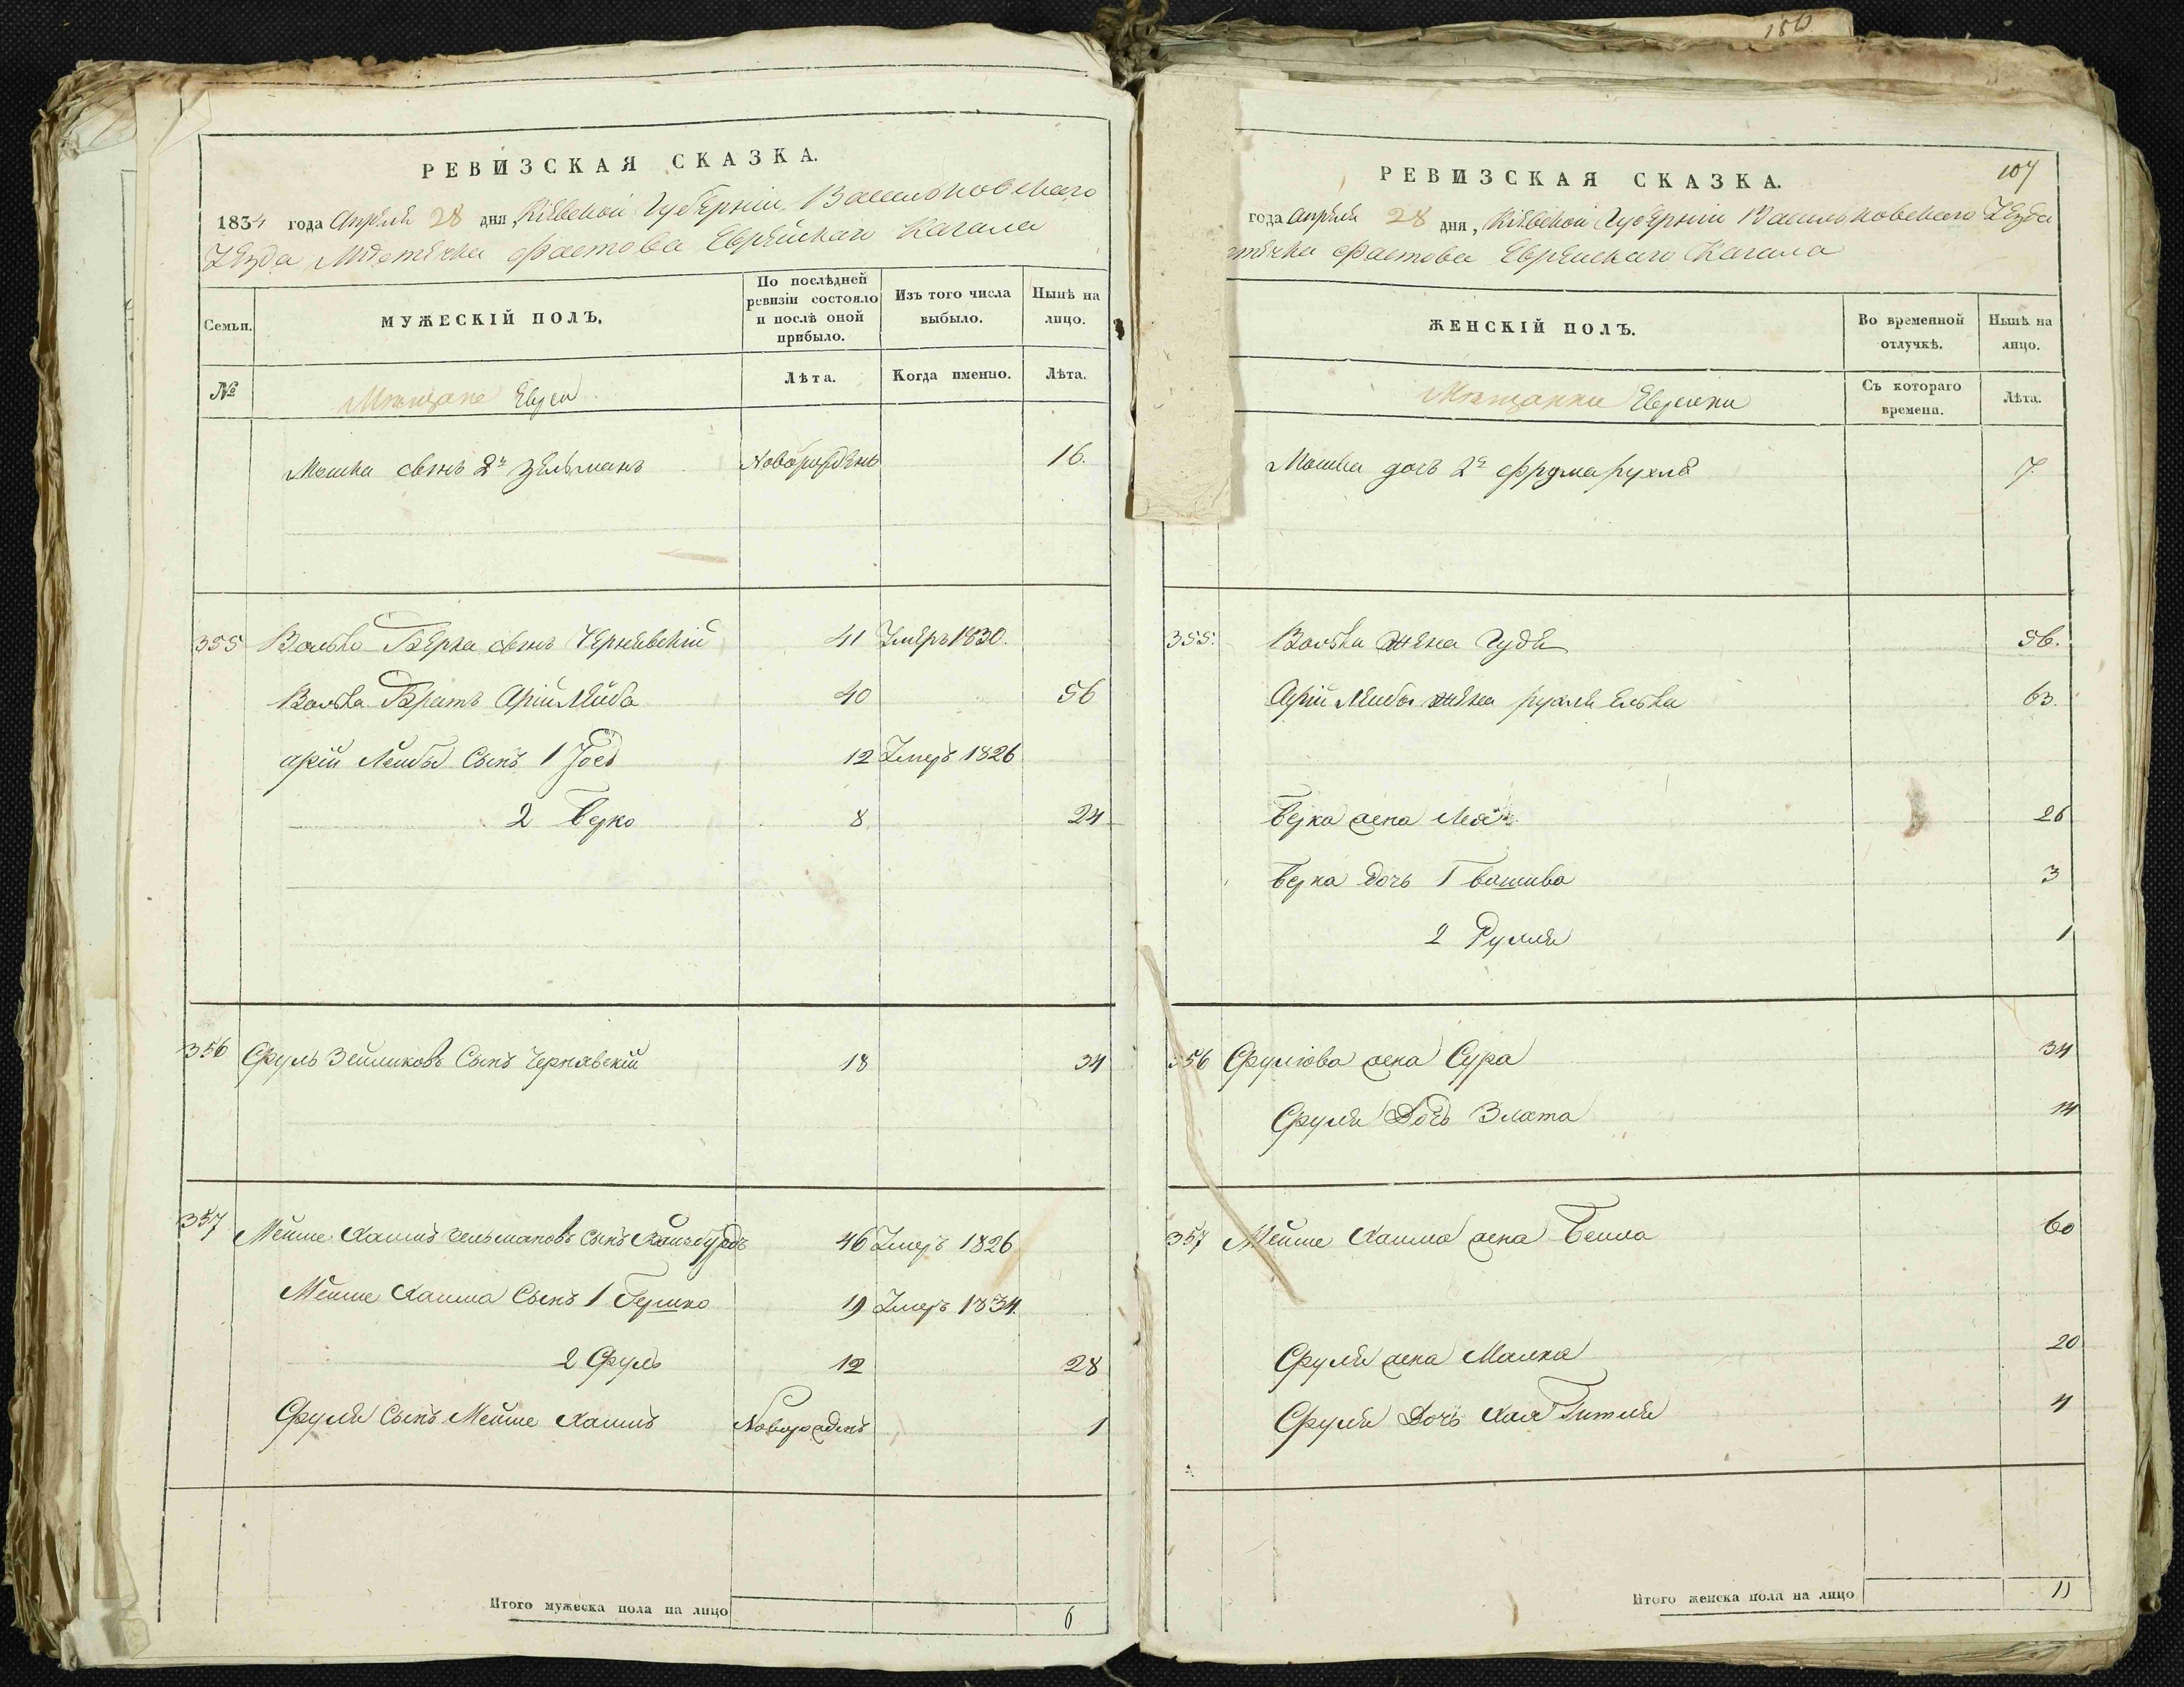 186
РЕВИЗСКАЯ СКАЗКА.
1834 года Апреля 28 дня, Кіевской Губерніи Васильковскаго
Уезда Местечка Фастова Еврейскаго Кагала
Семьи.
МУЖЕСКІЙ ПОЛЪ.
По послѣдней ревизіи состояло и послѣ оной прибыло.
Изъ того числа выбыло.
Нынѣ на лицо.
№
Мѣщане Евреи
Лѣта.
Когда именно.
Лѣта.
Мошка сынъ 2й Зельманъ Новорожденъ 16.
355 Волько Берка сынъ Чернявскій 41 Умеръ 1830.
Волька Братъ Арій Лейба 40 56
Арій Лейбы Сынъ 1 Іось 12 Умеръ 1826
2 Берко 8 24
356 Сруль Зейликовъ Сынъ Чернявскій 18 34
357 Мейше Хаимъ Зельмановъ Сынъ 46 Умеръ 1826
Мейше Хаима Сынъ 1 Гершко 19 Умеръ 1834.
2 Сруль 12 28
Сруля Сынъ Мейше Хаимъ Новорожденъ 1
Итого мужеска пола на лицо 6
107
РЕВИЗСКАЯ СКАЗКА.
года Апреля 28 дня, Кіевской Губерніи Васильковскаго Уезда
Фастова Еврейскаго Кагала
ЖЕНСКІЙ ПОЛЪ.
Во временной отлучкѣ.
Нынѣ на лицо.
Мѣщанки Еврейки
Съ котораго времени.
Лѣта.
Мошка дочь 2я Фрумарухля 7.
355. Волька жена Гудя 56.
Арій Лейбы жена Рухля Елька 63.
Берка жена Лея 26
Берка Дочь 1 Башива 3
2 Рухля 1
356 Срулова жена Сура 34
Сруля Дочь Злата 14
357 Мейше Хаима жена Бейла 60
Сруля жена Малка 20
Сруля Дочь Хая Гитля 4
Итого женска пола на лицо 11